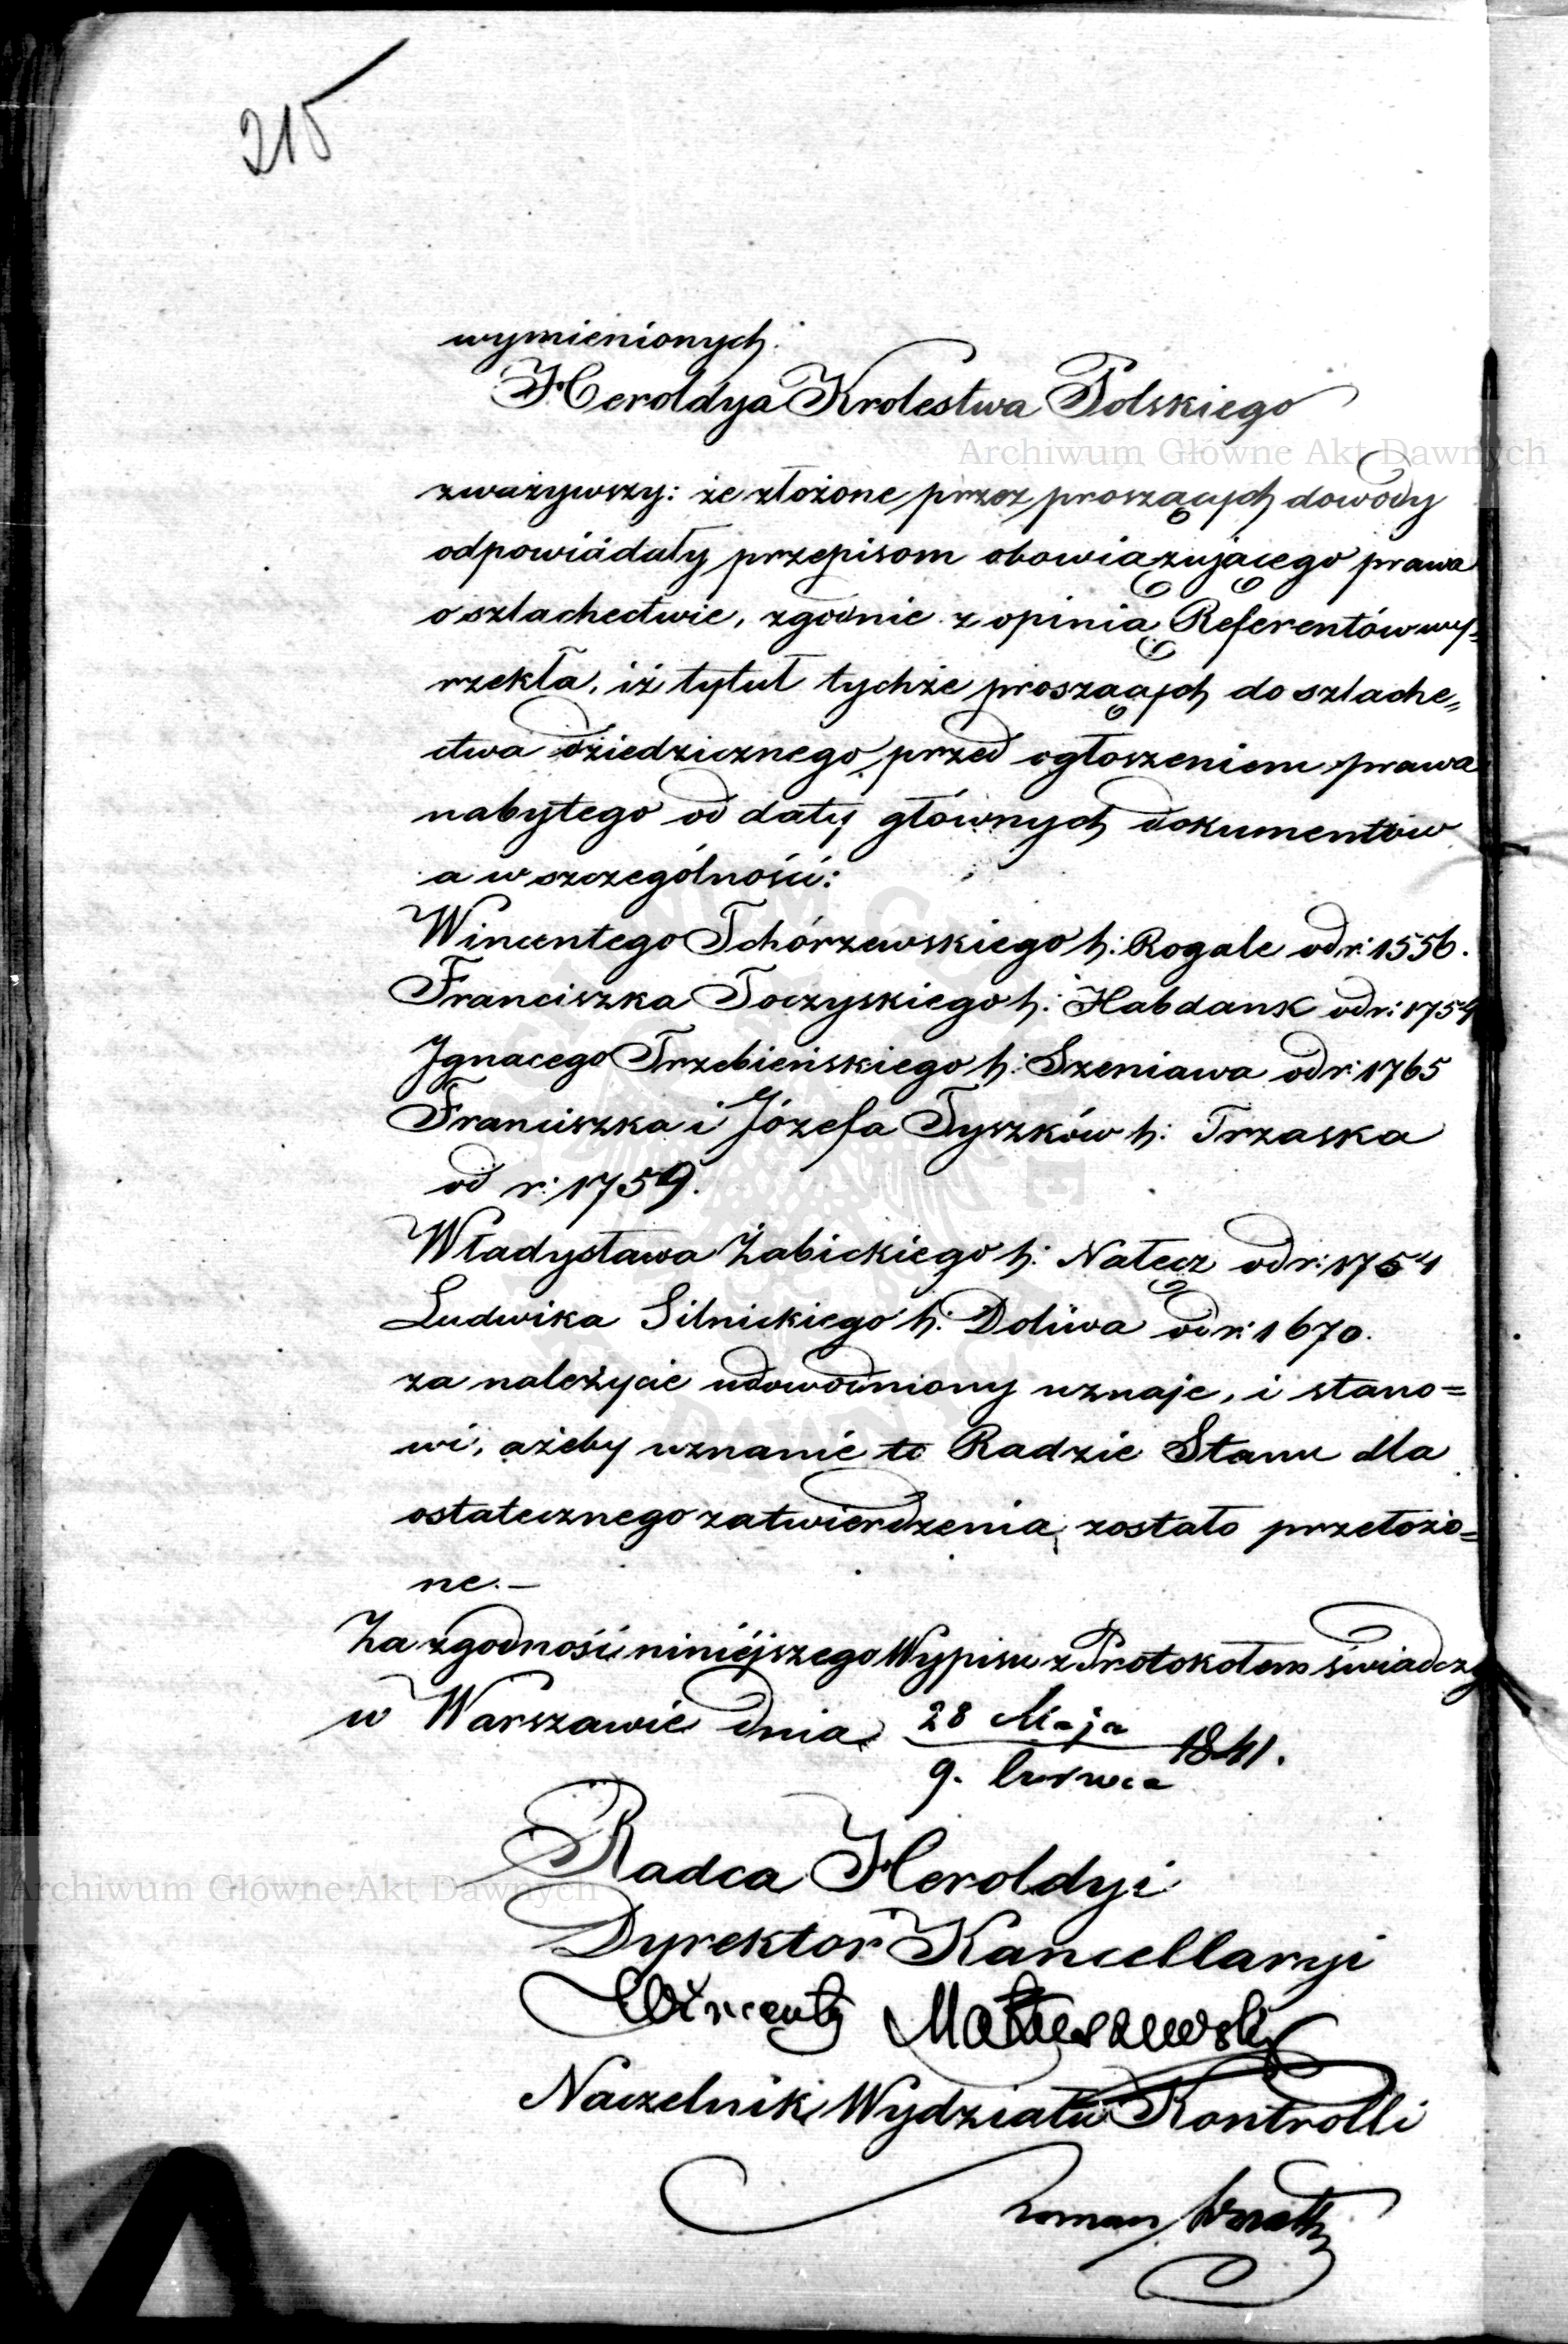 215
wymienionych:
Heroldya Krolestwa Polskiego
Archiwum Główne Akt Dawnych
zważywszy: że złożone przez proszących dowody
odpowiadały przepisom obowiązującego prawa
o szlachectwie, zgodnie z opinią Referentów wy=
rzekła, iż tytuł tychże proszących do szlache=
ctwa dziedzicznego przed ogłoszeniem prawa
nabytego od daty głównych dokumentów
a w szczególności:
Wincentego Tchórzewskiego h: Rogale od r: 1556.
Franciszka Toczyskiego h: Habdank od r: 1754
Ignacego Trzebieńskiego h: Szeniawa od r: 1765
Franciszka i Józefa Tyszków h: Trzaska
od r: 1759.
Władysława Żabickiego h: Nałęcz od r: 1754
Ludwika Silnickiego h: Doliwa od r: 1670.
za należycie udowodniony uznaje, i stano=
wi, ażeby uznanie to Radzie Stanu dla
ostatecznego zatwierdzenia, zostało przełożo=
ne.—
Za zgodność niniejszego Wypisu z Protokołem świadczą
w Warszawie dnia 28 Maja 1841.
9. Czerwca
Radca Heroldyi
Archiwum Główne Akt Dawnych
Dyrektor Kancellaryi
Wincenty Matuszewski
Naczelnik Wydziału Kontrolli